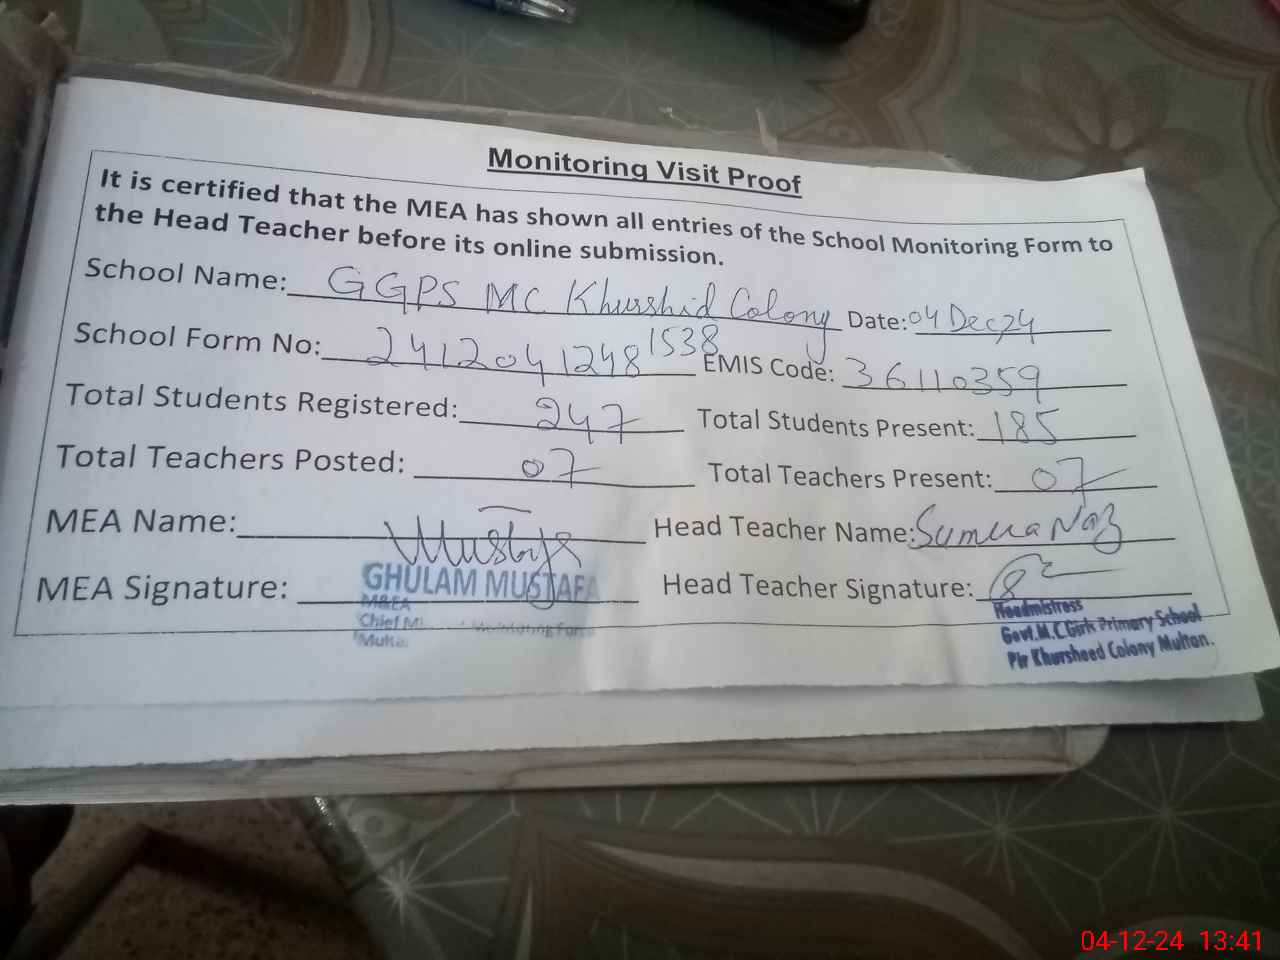 Monitoring Visit Proof
It is certified that the MEA has shown all entries of the School Monitoring Form to
the Head Teacher before its online submission.
School Name: GGPS MC Khurshid Colony Date: 04 Dec 24
School Form No: 24120412481538 EMIS Code: 36110359
Total Students Registered: 247 Total Students Present: 185
Total Teachers Posted: 07 Total Teachers Present: 07
MEA Name: Head Teacher Name: Sumera Naz
MEA Signature: Head Teacher Signature:
GHULAM MUSTAFA
M&EA
Chief Monitoring Force
Headmistress
Govt.M.C.Girls Primary School
Pir Khursheed Colony Multan.
04-12-24 13:41